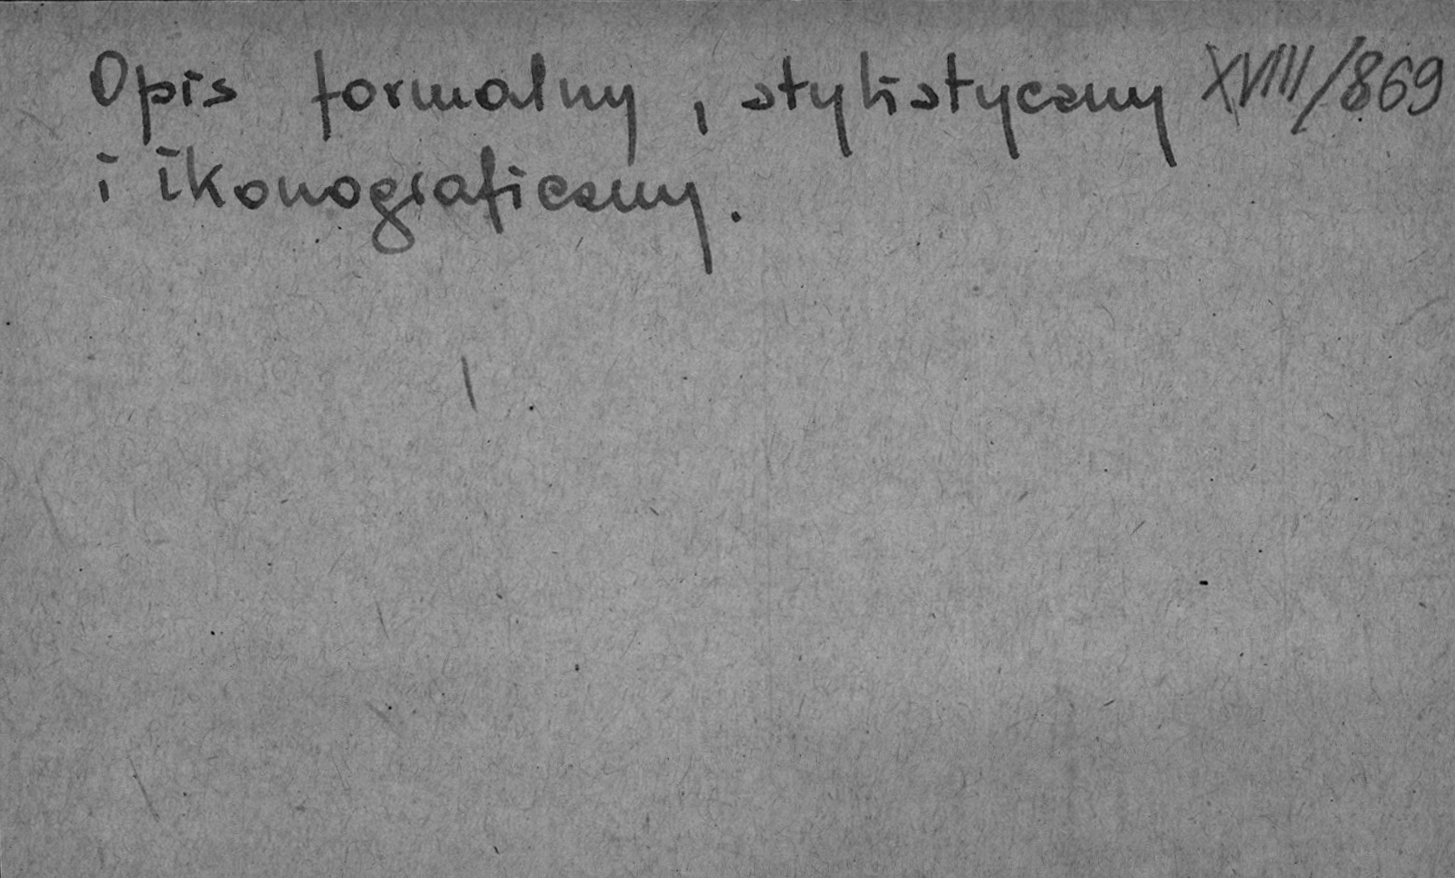 Opis formalny, stylistyczny XVIII/869
i ikonograficzny.